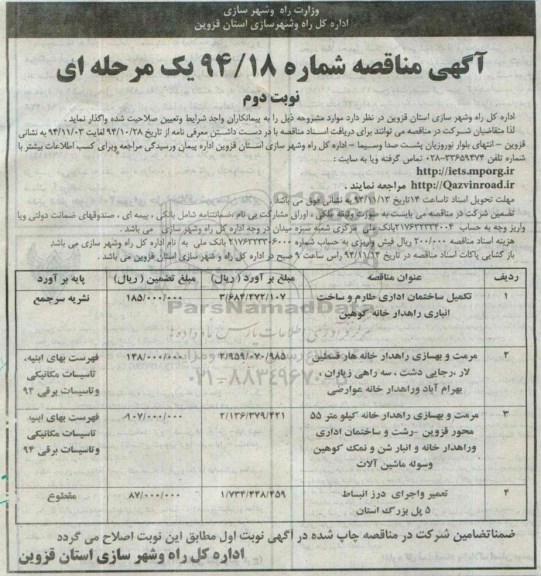 وزارت راه وشهر سازی
اداره کل راه وشهرسازی استان قزوین
آگهی مناقصه شماره ۹۴/۱۸ یک مرحله ای
نوبت دوم
اداره کل راه وشهر سازی استان قزوین در نظر دارد موارد مشروحه ذیل را به پیمانکاران واجد شرایط وتعیین صلاحیت شده واگذار نماید .
لذا متقاضیان شرکت در مناقصه می توانند برای دریافت اسناد مناقصه با در دست داشتن معرفی نامه از تاریخ ۹۴/۱۰/۲۸ لغایت ۹۴/۱۱/۰۳ به نشانی
قزوین - انتهای بلوار نوروزیان پشت صدا وسیما - اداره کل راه وشهر سازی استان قزوین اداره پیمان ورسیدگی مراجعه وبرای کسب اطلاعات بیشتر با
شماره تلفن ۳۳۶۵۹۴۷۴-۰۲۸ تماس گرفته ویا به سایت :
http://iets.mporg.ir
http://Qazvinroad.ir مراجعه نمایند .
مهلت تحویل اسناد تاساعت ۱۴ تاریخ ۹۴/۱۱/۱۳ به نشانی فوق می باشد
تضمین شرکت در مناقصه می بایست به صورت وثیقه ملکی ، اوراق مشارکت بی نام ،ضمانتنامه شامل بانکی ، بیمه ای ، صندوقهای ضمانت دولتی ویا
واریز وجه به حساب ۲۱۷۶۲۳۲۳۳۰۰۴ بانک ملی مرکزی شعبه سبزه میدان در وجه اداره کل راه وشهر سازی می باشد .
هزینه اسناد مناقصه ۲۰۰/۰۰۰ ریال فیش واریزی به حساب شماره ۲۱۷۶۲۳۲۳۰۶۰۰۰ بانک ملی به نام اداره کل راه وشهر سازی می باشد
باز گشایی پاکات اسناد مناقصه در تاریخ ۹۴/۱۱/۱۴ راس ساعت ۹ صبح در اداره کل راه و شهر سازی استان قزوین می باشد .
ردیف عنوان مناقصه مبلغ بر آورد ( ریال) مبلغ تضمین ( ریال) پایه بر آورد
۱ تکمیل ساختمان اداری طارم و ساخت ۳/۶۸۴/۴۷۲/۱۰۷ ۱۸۵/۰۰۰/۰۰۰ نشریه سرجمع
انباری راهدار خانه کوهین
۲ مرمت و بهسازی راهدار خانه هار قسطین ۲/۹۵۹/۰۷۰/۹۸۵ ۱۴۸/۰۰۰/۰۰۰ فهرست بهای ابنیه،
لار ،رجایی دشت ، سه راهی زیاران ، تاسیسات مکانیکی
بهرام آباد وراهدار خانه عوارضی وتاسیسات برقی ۹۴
۳ مرمت و بهسازی راهدار خانه کیلو متر ۵۵ ۲/۱۳۶/۳۷۹/۴۲۱ ۹۰۷/۰۰۰/۰۰۰ فهرست بهای ابنیه
محور قزوین -رشت و ساختمان اداری تاسیسات مکانیکی
وراهدار خانه و انبار شن و نمک کوهین وتاسیسات برقی ۹۴
وسوله ماشین آلات
۴ تعمیر واجرای درز انبساط ۱/۷۳۴/۴۴۸/۴۵۹ ۸۷/۰۰۰/۰۰۰ مقطوع
۵ پل بزرگ استان
ضمناتضامین شرکت در مناقصه چاپ شده در آگهی نوبت اول مطابق این نوبت اصلاح می گردد
اداره کل راه وشهر سازی استان قزوین
ParsNamadData
۰۲۱-۸۸۳۴۹۶۷۰-۵